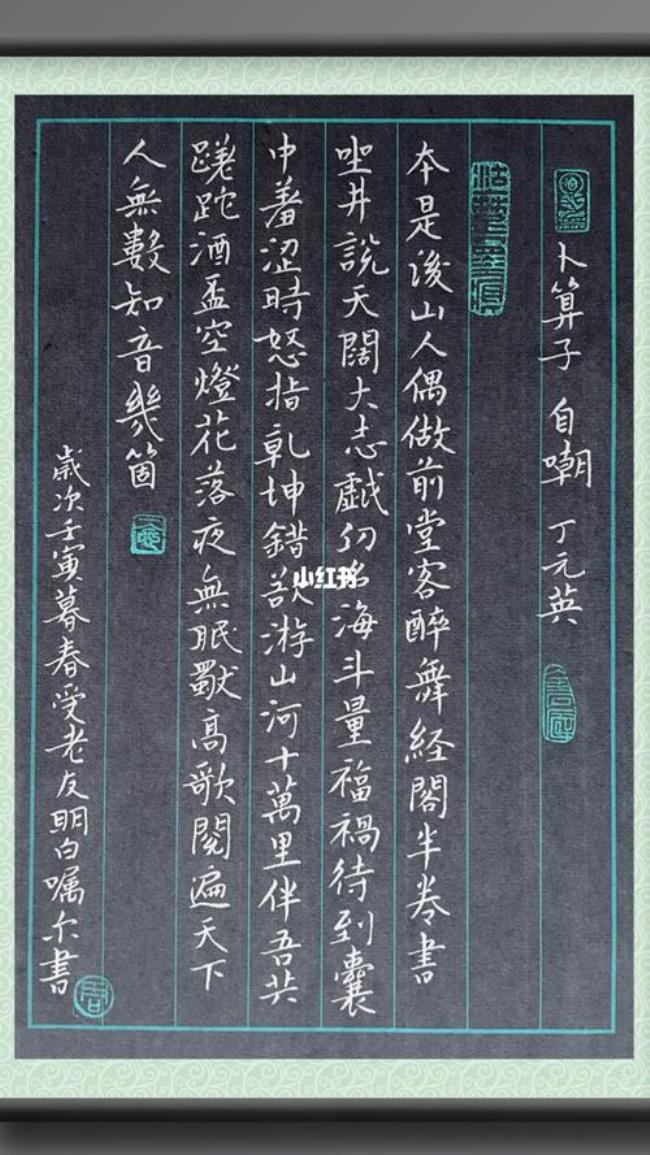 卜算子 自嘲 丁元英
本是後山人偶做前堂客醉舞經閣半卷書
坐井說天闊大志戲功名海斗量福禍待到囊
中羞澀時怒指乾坤錯欲游山河十萬里伴吾共
蹉跎酒盃空燈花落夜無眠高歌閱遍天下
人無數知音幾箇
歲次壬寅暮春受老友明白嘱尔書
小红书